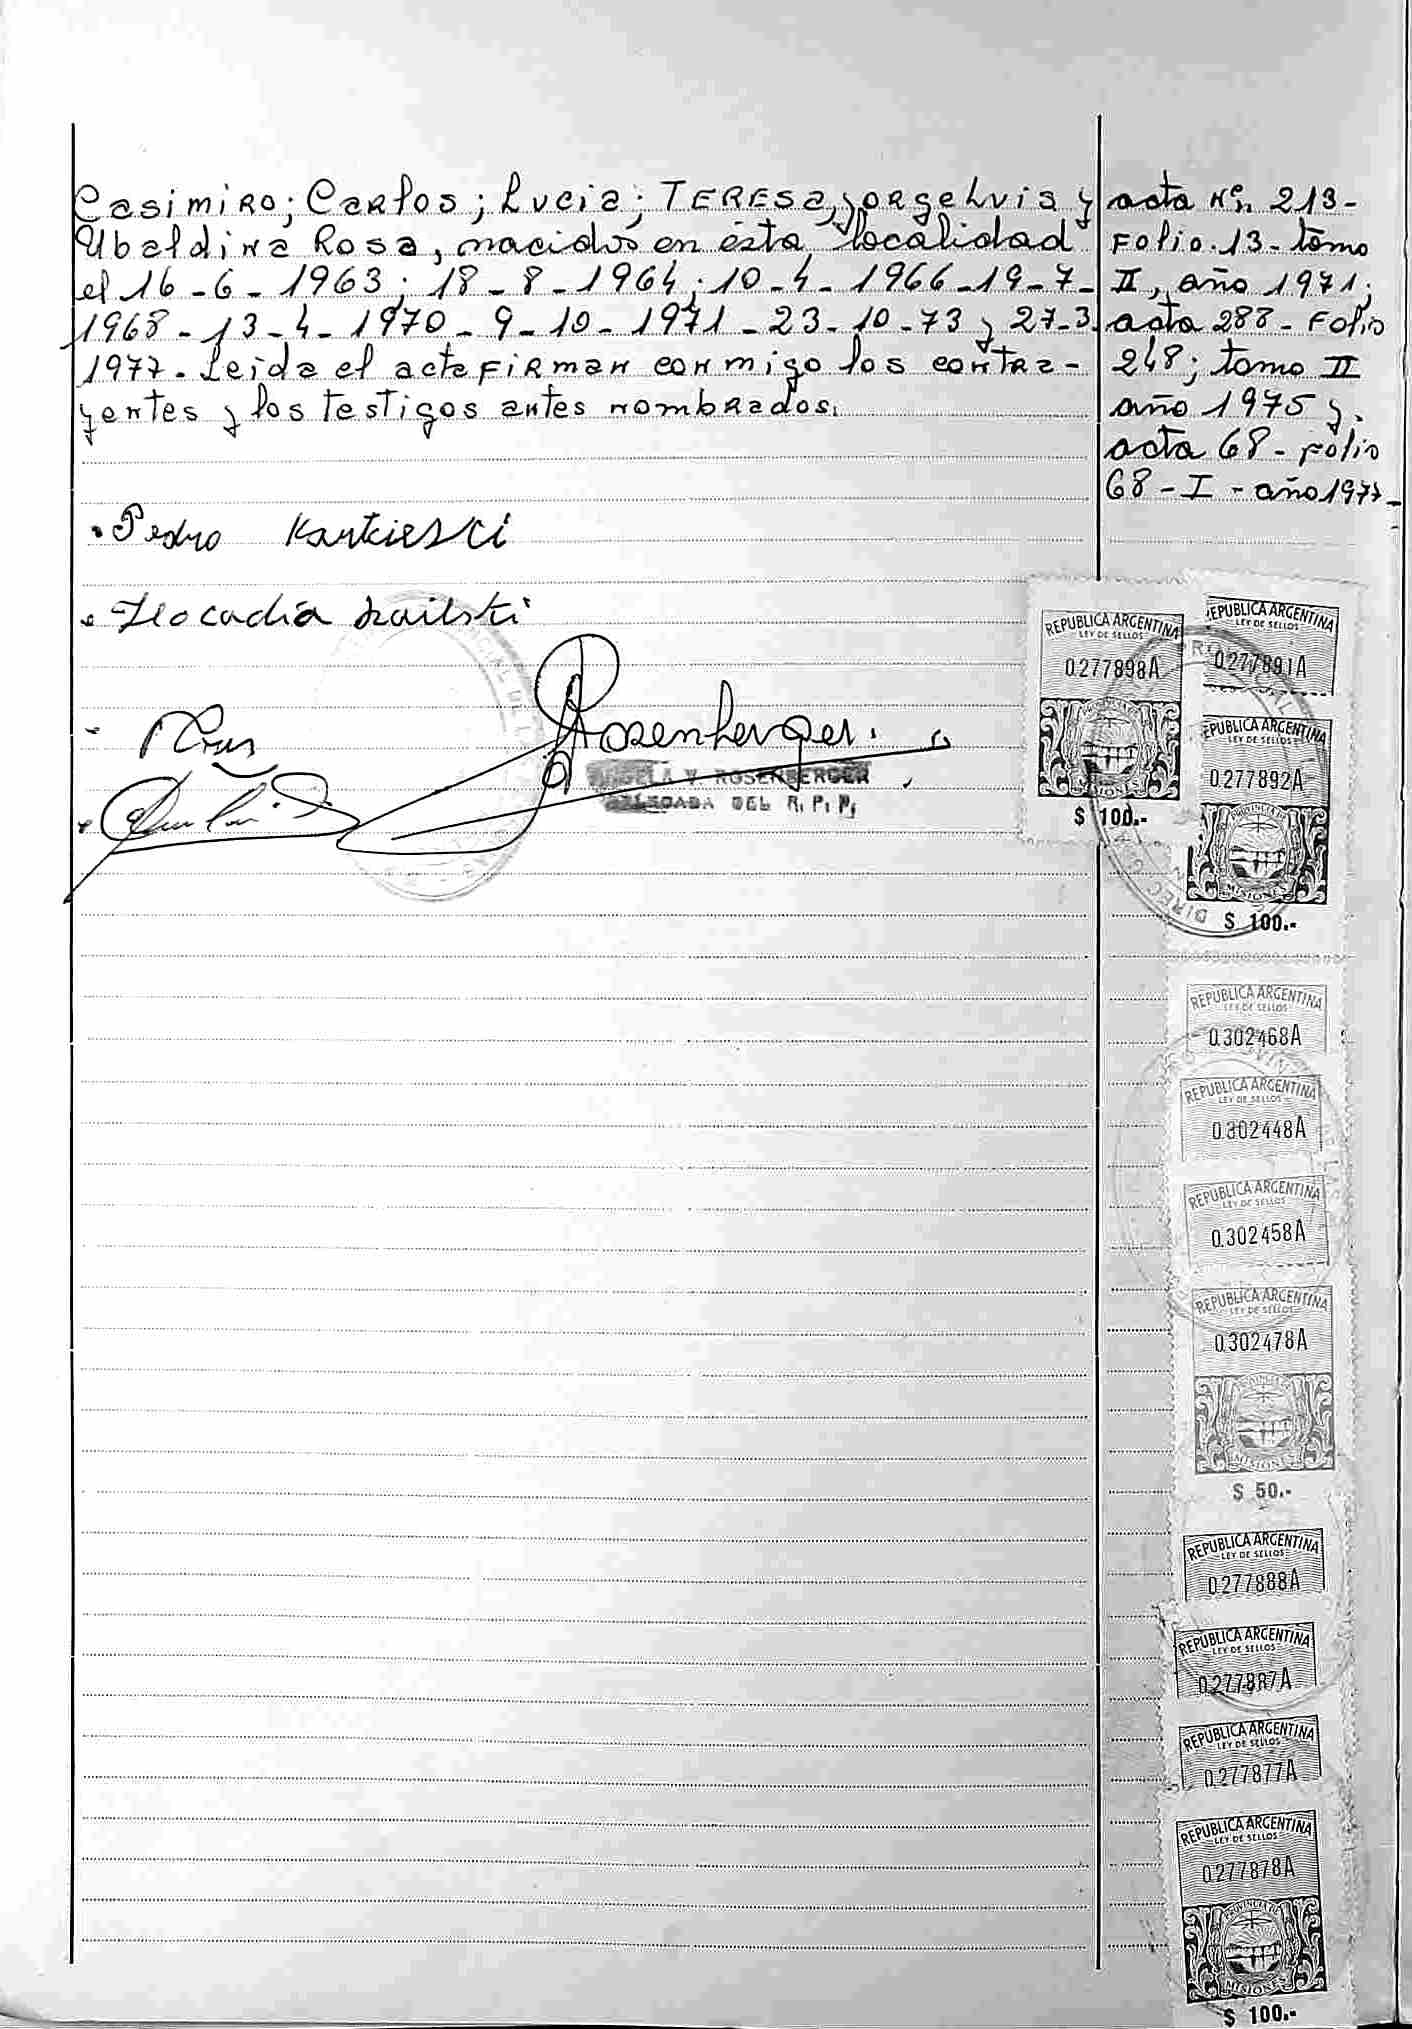 Casimiro; Carlos; Lucia; TERESA, Jorge Luis y
Ubaldina Rosa, nacidos en ésta localidad
el 16-6-1963; 18-8-1964; 10-4-1966-19-7-
1968-13-4-1970-9-10-1971-23-10-73 y 27-3.
1977. Leida el acta FIRMAN conmigo los contra-
yentes y los testigos antes nombrados.
acta Nº 213-
Folio. 13- tomo
II, año 1971;
acta 288- Folio
248; tomo II
año 1975 y.
acta 68- folio
68-I-año 1977-
Pedro
Rosenberger.
ROSENBERGER
DEL R. P. P.
REPUBLICA ARGENTINA
LEY DE SELLOS
0.277898A
MISIONES
$ 100.-
EPUBLICA ARGENTINA
LEY DE SELLOS
0.277891A
EPUBLICA ARGENTINA
LEY DE SELLOS
0.277892A
PROVINCIA DE
MISIONES
$ 100.-
REPUBLICA ARGENTINA
LEY DE SELLOS
0.302468A
REPUBLICA ARGENTINA
LEY DE SELLOS
0.302448A
REPUBLICA ARGENTINA
LEY DE SELLOS
0.302458A
REPUBLICA ARGENTINA
LEY DE SELLOS
0.302478A
PROVINCIA DE
MISIONES
$ 50.-
REPUBLICA ARGENTINA
LEY DE SELLOS
0.277888A
REPUBLICA ARGENTINA
LEY DE SELLOS
0.277887A
REPUBLICA ARGENTINA
LEY DE SELLOS
0.277877A
REPUBLICA ARGENTINA
LEY DE SELLOS
0.277878A
PROVINCIA DE
MISIONES
$ 100.-